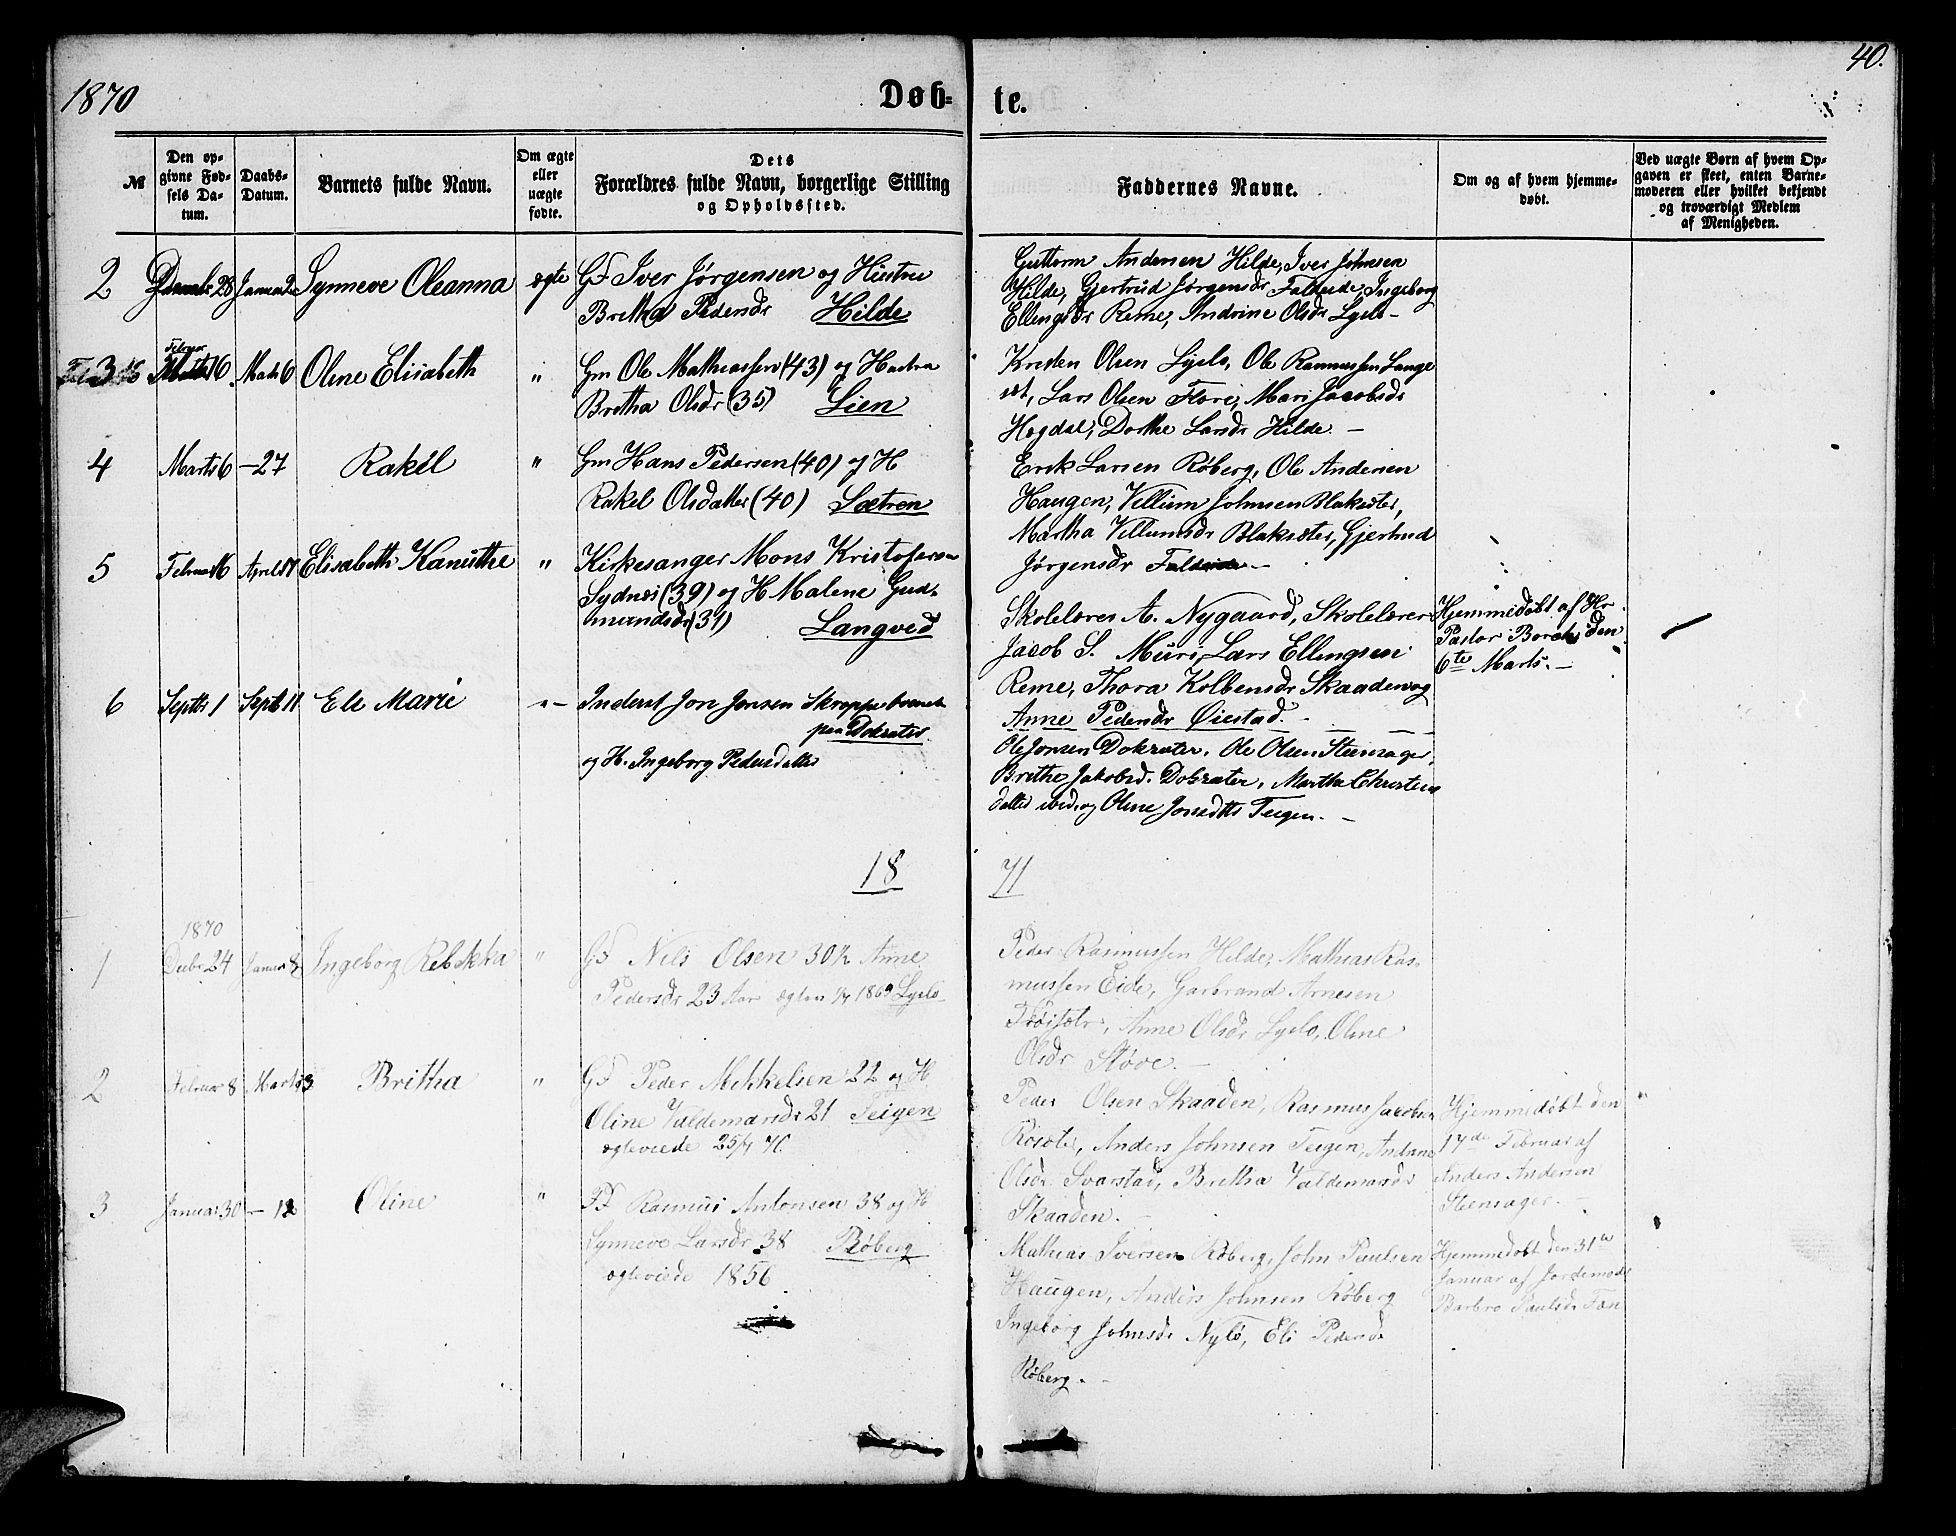 1870
Døb-
te.
40.
№
Den op-
givne Fød-
sels Da-
tum.
Daabs-
Datum.
Barnets fulde Navn.
Om ægte
eller
uægte
fødte.
Dets
Forældres fulde Navn, borgerlige Stilling
og Opholdssted.
Faddernes Navne.
Om og af hvem hjemme-
døbt.
Ved uægte Børn af hvem Op-
gaven er skeet, enten Barne-
moderen eller hvilket bekjendt
og troværdigt Medlem
af Menigheden.
2 28 Synneve Oleanna ægte GF Iver Jørgensen og Hustru
Britha Pedersdr Hilde
Guttorm Andersen Hilde, Iver Johnsen
Hilde, Gjertrud Jørgensdr Faldeide, Ingeborg
Ellingsdr Reme, Andrine Olsdr Lyslo -
3 Februar 16 Marts 6 Oline Elisabeth " Gm Ole Mathiassen (43) og Hustru
Britha Olsdr (35) Lien
Kristen Olsen Lyslo, Ole Rasmussen Lange
set, Lars Olsen Flore, Mari Jacobsdr
Hogdal, Dorthe Larsdr Hilde. -
4 Marts 6 - 27 Rakel " Gm Hans Pedersen (40) og H
Rakel Olsdatter (40) Sætren
Erik Larsen Røberg, Ole Andersen
Haugen, Villum Johnsen Blakseter,
Martha Villumsdr Blakseter, Gjertrud
Jørgensdr Faldeide -
5 Februar 16 April 17 Elisabeth Kanuthe " Kirkesanger Mons Kristofersen
Sydnes (39) og H Malene Gud-
mundsdr (31) Langved
Skolelærer A. Nygaard, Skolelærer
Jacob S. Muri, Lars Ellingsen
Reme, Thora Kolbensdr Skaaden og
Anne Pedersdr Øiestad. -
Hjemmedøbt af Hr.
Pastor Borch den
6te Marts. -
6 Septbr 1 Septb 11 Eli Marie - " - Inderst Jon Jonsen
paa Dokseter
og H. Ingeborg Pedersdatter
Ole Jonsen Dokseter, Ole Olsen Steensager,
Brithe Jakobsd. Dokseter, Martha Christens
datter ibid. og Oline Jonsdtr Teigen. -
18
71
1 1870
Decbr 24 Januar 8 Ingeborg Rebekka " GF Nils Olsen 30 1/2 Anne
Pedersdr 23 Aar 1869 Lyslo
Peder Rasmussen Hilde, Mathias Ras-
mussen Eide, Garbrand Arnesen
Anne Olsdr Lyslo, Oline
Olsdr Støve. -
2 Februar 8 Marts 3 Britha " GF Peder Mikkelsen 22 og H.
Oline Valdemarsdr 21 Teigen
ægteviede 70.
Peder Olsen Skaaden, Rasmus Jacobsen
Anders Johnsen Teigen, Andrine
Olsdr Svarstad, Britha Valdemarsdr
Skaaden. -
Hjemmedøbt den
17de Februar af
Anders Andersen
Steensager. -
3 Januar 30 - 12 Oline " Rasmus Antonsen 38 og H
Synneve Larsdr 38 Røberg
ægteviede 1856
Mathias Iversen Røberg, John Paulsen
Haugen, Anders Johnsen Røberg
Ingeborg Johnsdr Nylø, Eli Pedersdr
Røberg. -
Hjemmedøbt den 31te
Januar af Jordemoder
Barbro Paulsdr